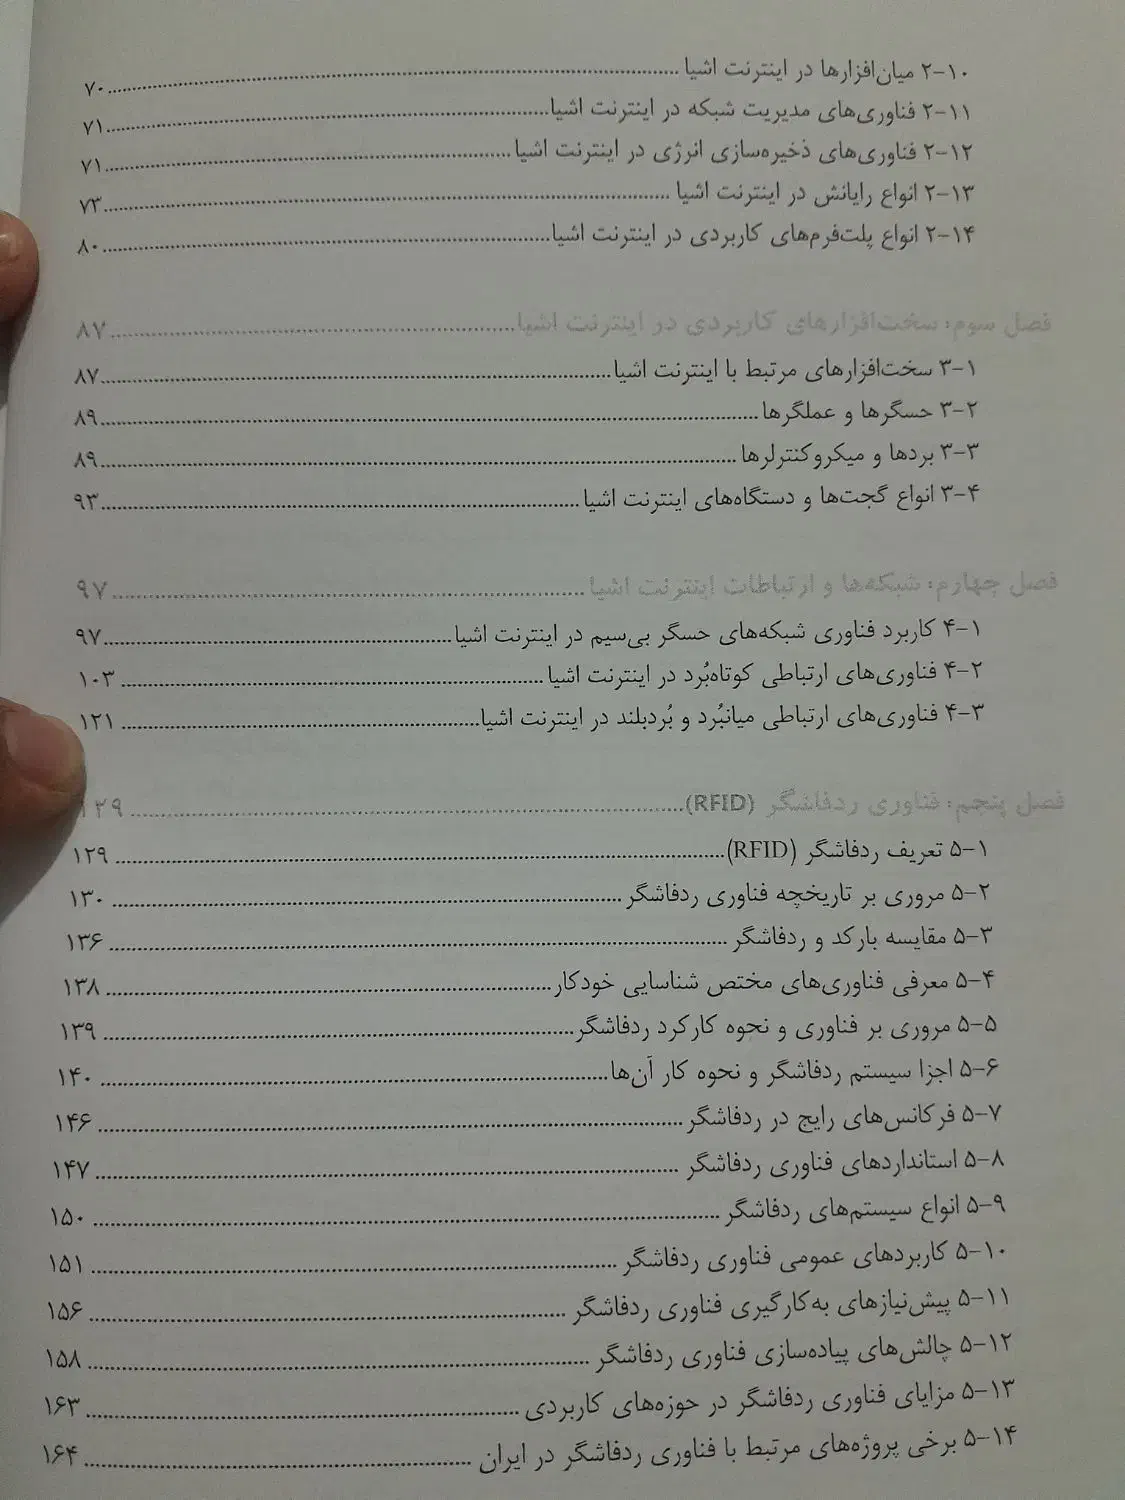 ۲-۱۰ میان‌افزارها در اینترنت اشیا ........ ۷۰
۲-۱۱ فناوری‌های مدیریت شبکه در اینترنت اشیا ........ ۷۱
۲-۱۲ فناوری‌های ذخیره‌سازی انرژی در اینترنت اشیا ........ ۷۱
۲-۱۳ انواع رایانش در اینترنت اشیا ........ ۷۳
۲-۱۴ انواع پلت‌فرم‌های کاربردی در اینترنت اشیا ........ ۸۰
فصل سوم: سخت‌افزارهای کاربردی در اینترنت اشیا ........ ۸۷
۳-۱ سخت‌افزارهای مرتبط با اینترنت اشیا ........ ۸۷
۳-۲ حسگرها و عملگرها ........ ۸۹
۳-۳ بردها و میکروکنترلرها ........ ۸۹
۳-۴ انواع گجت‌ها و دستگاه‌های اینترنت اشیا ........ ۹۳
فصل چهارم: شبکه‌ها و ارتباطات اینترنت اشیا ........ ۹۷
۴-۱ کاربرد فناوری شبکه‌های حسگر بی‌سیم در اینترنت اشیا ........ ۹۷
۴-۲ فناوری‌های ارتباطی کوتاه‌بُرد در اینترنت اشیا ........ ۱۰۳
۴-۳ فناوری‌های ارتباطی میانبُرد و بُردبلند در اینترنت اشیا ........ ۱۲۱
فصل پنجم: فناوری ردفاشگر (RFID) ........ ۱۲۹
۵-۱ تعریف ردفاشگر (RFID) ........ ۱۲۹
۵-۲ مروری بر تاریخچه فناوری ردفاشگر ........ ۱۳۰
۵-۳ مقایسه بارکد و ردفاشگر ........ ۱۳۶
۵-۴ معرفی فناوری‌های مختص شناسایی خودکار ........ ۱۳۸
۵-۵ مروری بر فناوری و نحوه کارکرد ردفاشگر ........ ۱۳۹
۵-۶ اجزا سیستم ردفاشگر و نحوه کار آن‌ها ........ ۱۴۰
۵-۷ فرکانس‌های رایج در ردفاشگر ........ ۱۴۶
۵-۸ استانداردهای فناوری ردفاشگر ........ ۱۴۷
۵-۹ انواع سیستم‌های ردفاشگر ........ ۱۵۰
۵-۱۰ کاربردهای عمومی فناوری ردفاشگر ........ ۱۵۱
۵-۱۱ پیش‌نیازهای به‌کارگیری فناوری ردفاشگر ........ ۱۵۶
۵-۱۲ چالش‌های پیاده‌سازی فناوری ردفاشگر ........ ۱۵۸
۵-۱۳ مزایای فناوری ردفاشگر در حوزه‌های کاربردی ........ ۱۶۳
۵-۱۴ برخی پروژه‌های مرتبط با فناوری ردفاشگر در ایران ........ ۱۶۴